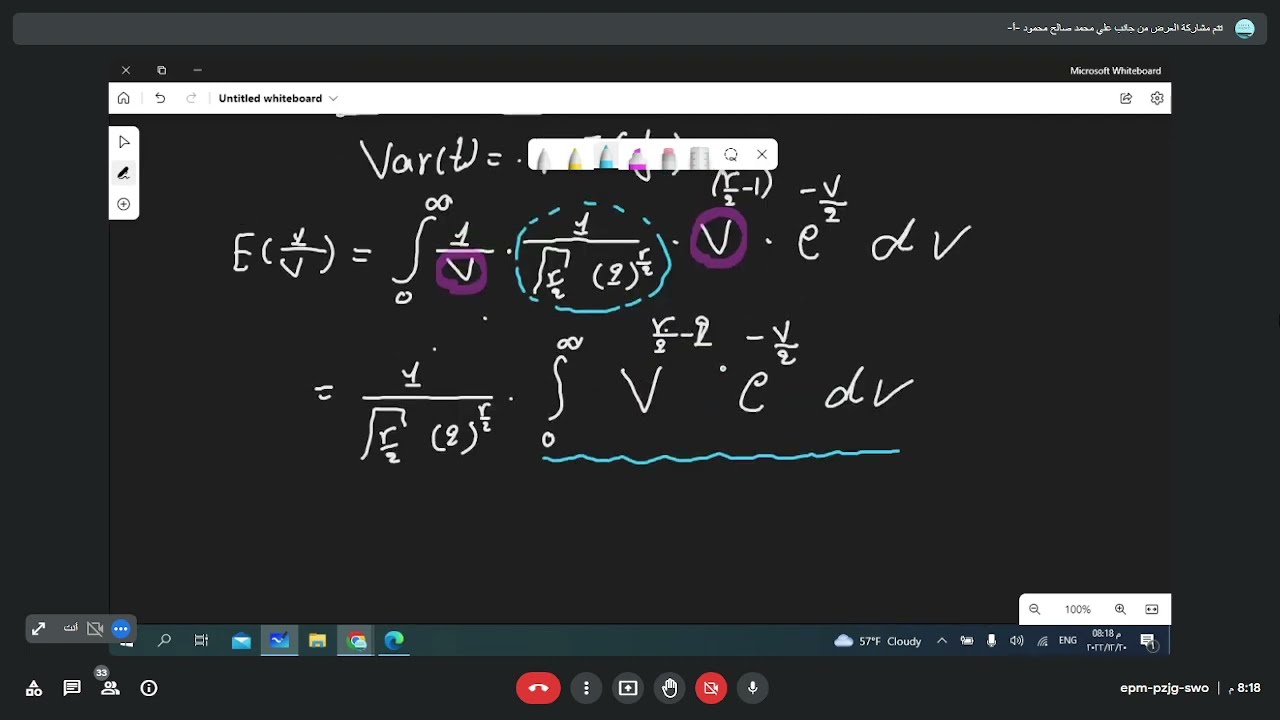 تتم مشاركة العرض من جانب علي محمد صالح محمود -أ-
Microsoft Whiteboard
Untitled whiteboard
Var(t) = .
E(1/V) = ∫₀^∞ 1/V · 1/(Γ(r/2) (2)^(r/2)) · V^(r/2 - 1) · e^(-V/2) dV
= 1/(Γ(r/2) (2)^(r/2)) · ∫₀^∞ V^(r/2 - 2) · e^(-V/2) dV
100%
أنت
57°F Cloudy
ENG
08:18 م
٢٠٢٢/١٢/٢٠
1
33
epm-pzjg-swo | 8:18 م